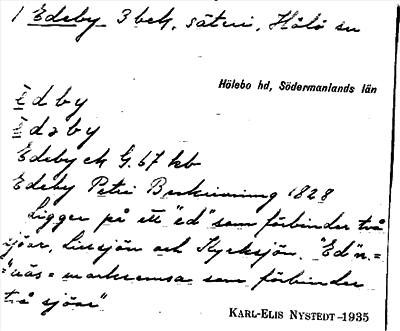 1 Edeby 3 bek, säteri, Hölö sn
Hölebo hd, Södermanlands län
Edby
Edeby
Edeby ek G. 67 kb
Edeby Petri Beskrivning 1828
Ligger på ett "ed" som förbinder två
sjöar, Lillsjön och Kyrksjön. "Ed" n. =
= "näs = markremsa som förbinder
två sjöar"
KARL-ELIS NYSTEDT-1935